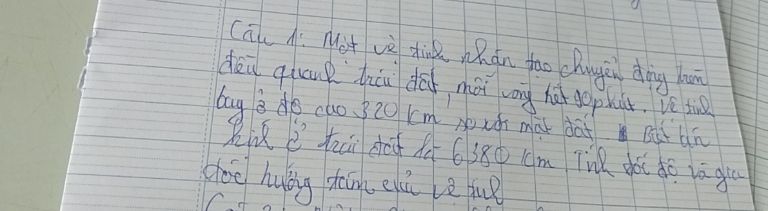 Câu 1: Một vệ tinh nhân tạo chuyển động tròn
đều quanh trái đất, mỗi vòng hết 90 phút, vệ tinh
bay ở độ cao 320 km so với mặt đất Biết bán
kính trái đất là 6380 km, Tính tốc độ và gia
tốc hướng tâm của vệ tinh